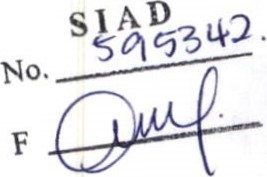 SIAD
No. 595342.
F